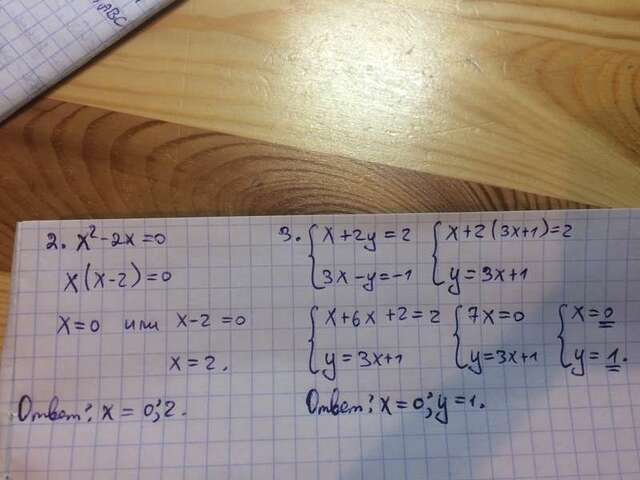 ABC
2. x²-2x=0
x(x-2)=0
x=0 или x-2=0
x=2.
Ответ: x=0;2.
3. {x+2y=2 {x+2(3x+1)=2
{3x-y=-1 {y=3x+1
{x+6x+2=2 {7x=0 {x=0
{y=3x+1 {y=3x+1 {y=1.
Ответ: x=0; y=1.